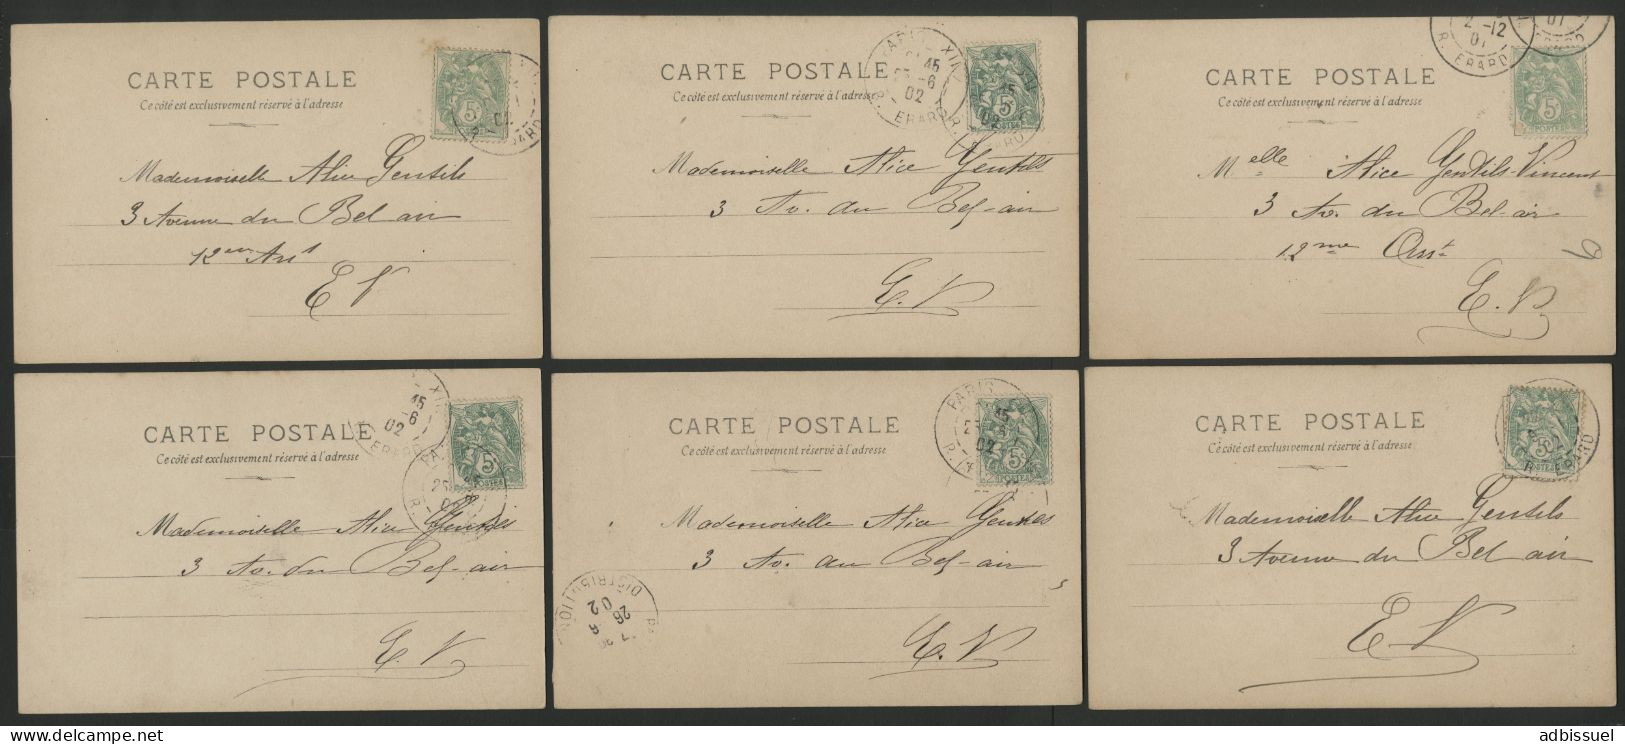 CARTE POSTALE
Ce côté est exclusivement réservé à l'adresse
5c
POSTES
02
Mademoiselle Alice Gentils
3 Avenue du Bel air
12em Arrt
E V
CARTE POSTALE
Ce côté est exclusivement réservé à l'adresse
PARIS XII
45
25 -6
02
R. ERARD
5c
POSTES
Mademoiselle Alice Gentils
3 Av. du Bel-air
E. V
CARTE POSTALE
Ce côté est exclusivement réservé à l'adresse
2 -12
01
R. ERARD
01
ERARD
5c
POSTES
Melle Alice Gentils-Vincent
3 Av. du Bel-air
12me Arrt
E. V.
9
CARTE POSTALE
Ce côté est exclusivement réservé à l'adresse
45
6
02
ERARD
5c
POSTES
25
02
R.
Mademoiselle Alice Gentils
3 Av. du Bel-air
E. V
CARTE POSTALE
Ce côté est exclusivement réservé à l'adresse
PARIS
45
02
R.
5c
POSTES
Mademoiselle Alice Gentils
3 Av. du Bel-air
E. V.
DISTRIBUTION
26
6
02
CARTE POSTALE
Ce côté est exclusivement réservé à l'adresse
02
R. ERARD
5c
POSTES
Mademoiselle Alice Gentils
3 Avenue du Bel air
E V
adbissuel